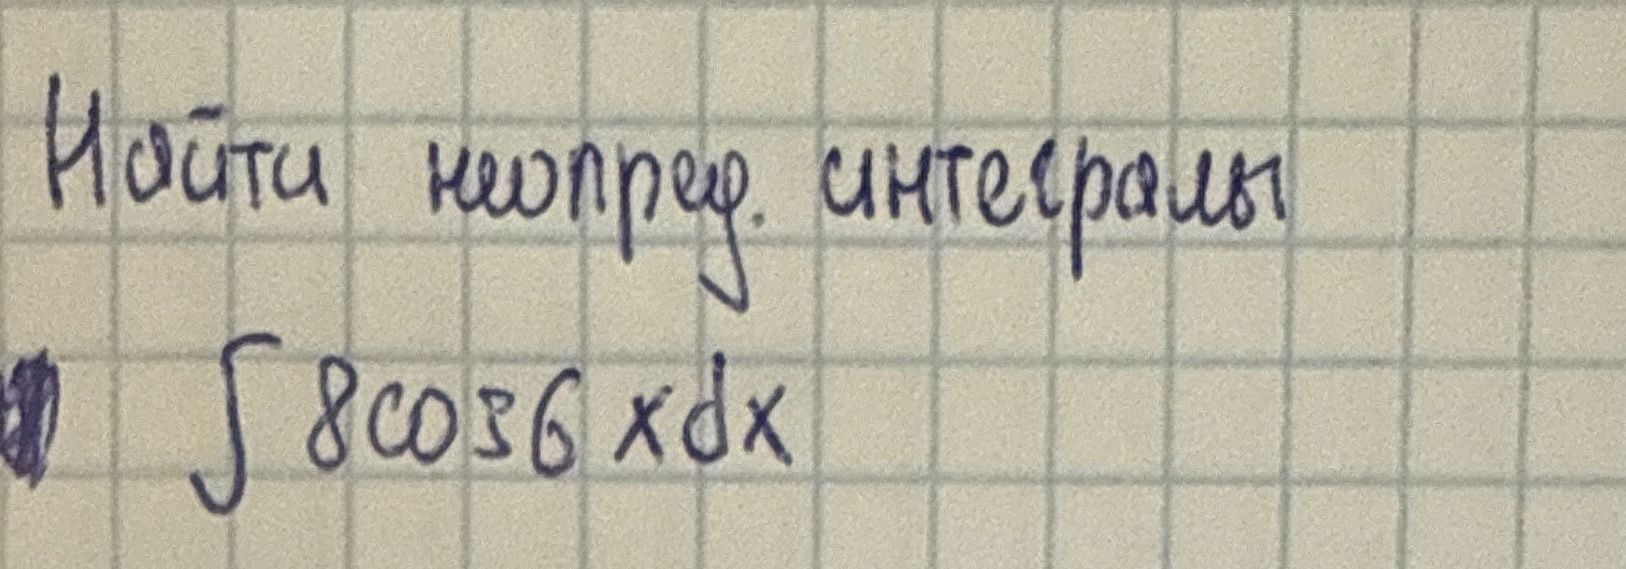 Найти неопред. интегралы
∫ 8cos6 xdx